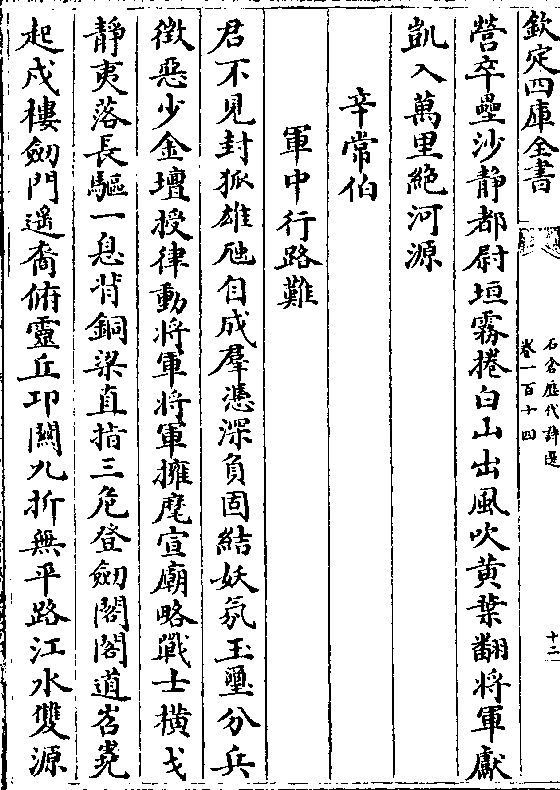 欽定四庫全書
石倉歷代詩選
卷一百十四
十二
營卒壘沙静都尉垣霧捲白山出風吹黄葉翻將軍獻
凱入萬里絶河源
辛常伯
軍中行路難
君不見封狐雄虺自成羣憑深負固結妖氛玉璽分兵
徴惡少金壇授律動將軍將軍擁麾宣廟略戰士横戈
静夷落長驅一息背銅梁直指三危登劒閣閣道岧嶤
起戍樓劒門遥裔俯靈丘邛關九折無平路江水雙源